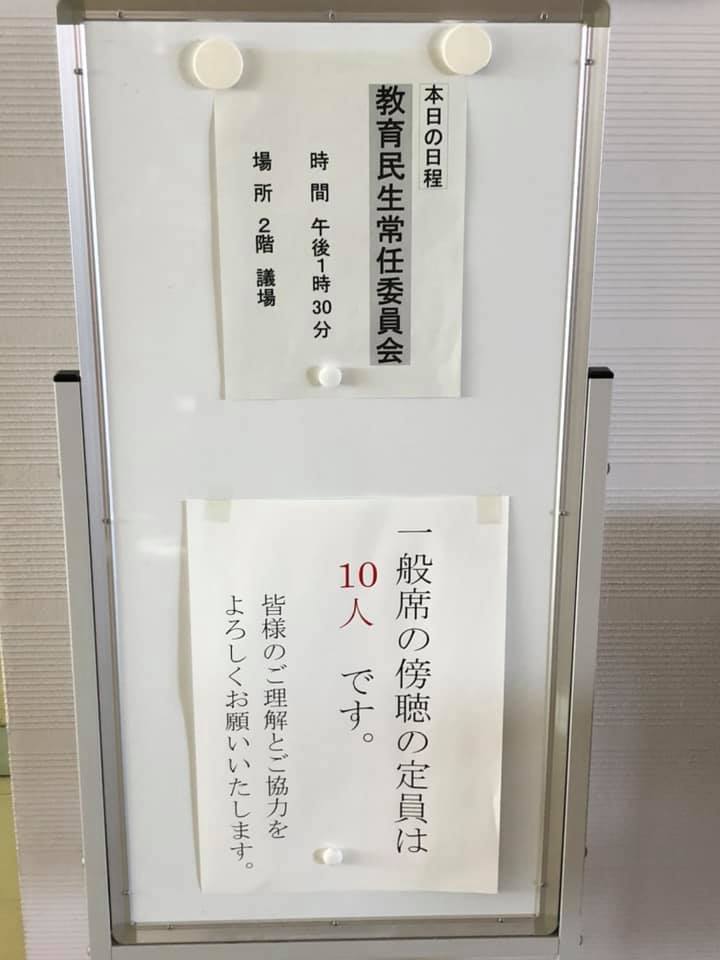 本日の日程
教育民生常任委員会
時間 午後1時30分
場所 2階 議場
一般席の傍聴の定員は
10人 です。
皆様のご理解とご協力を
よろしくお願いいたします。